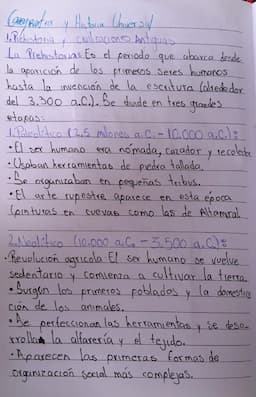 Geografía y Historia Universal
1. Prehistoria y civilizaciones Antiguas
La Prehistoria: Es el periodo que abarca desde
la aparición de los primeros seres humanos
hasta la invención de la escritura (alrededor
del 3.500 a.C.). Se divide en tres grandes
etapas:
1. Paleolítico (2,5 millones a.C. - 10.000 a.C.):
• El ser humano era nómada, cazador y recolector
• Usaban herramientas de piedra tallada.
• Se organizaban en pequeñas tribus.
• El arte rupestre aparece en esta época
(pinturas en cuevas como las de Altamira).
2. Neolítico (10.000 a.C. - 3.500 a.C.):
• Revolución agrícola El ser humano se vuelve
sedentario y comienza a cultivar la tierra.
• Surgen los primeros poblados y la domestica
ción de los animales.
• Se perfeccionan las herramientas y se desa-
rrolla la alfarería y el tejido.
• Aparecen las primeras formas de
organización social más complejas.